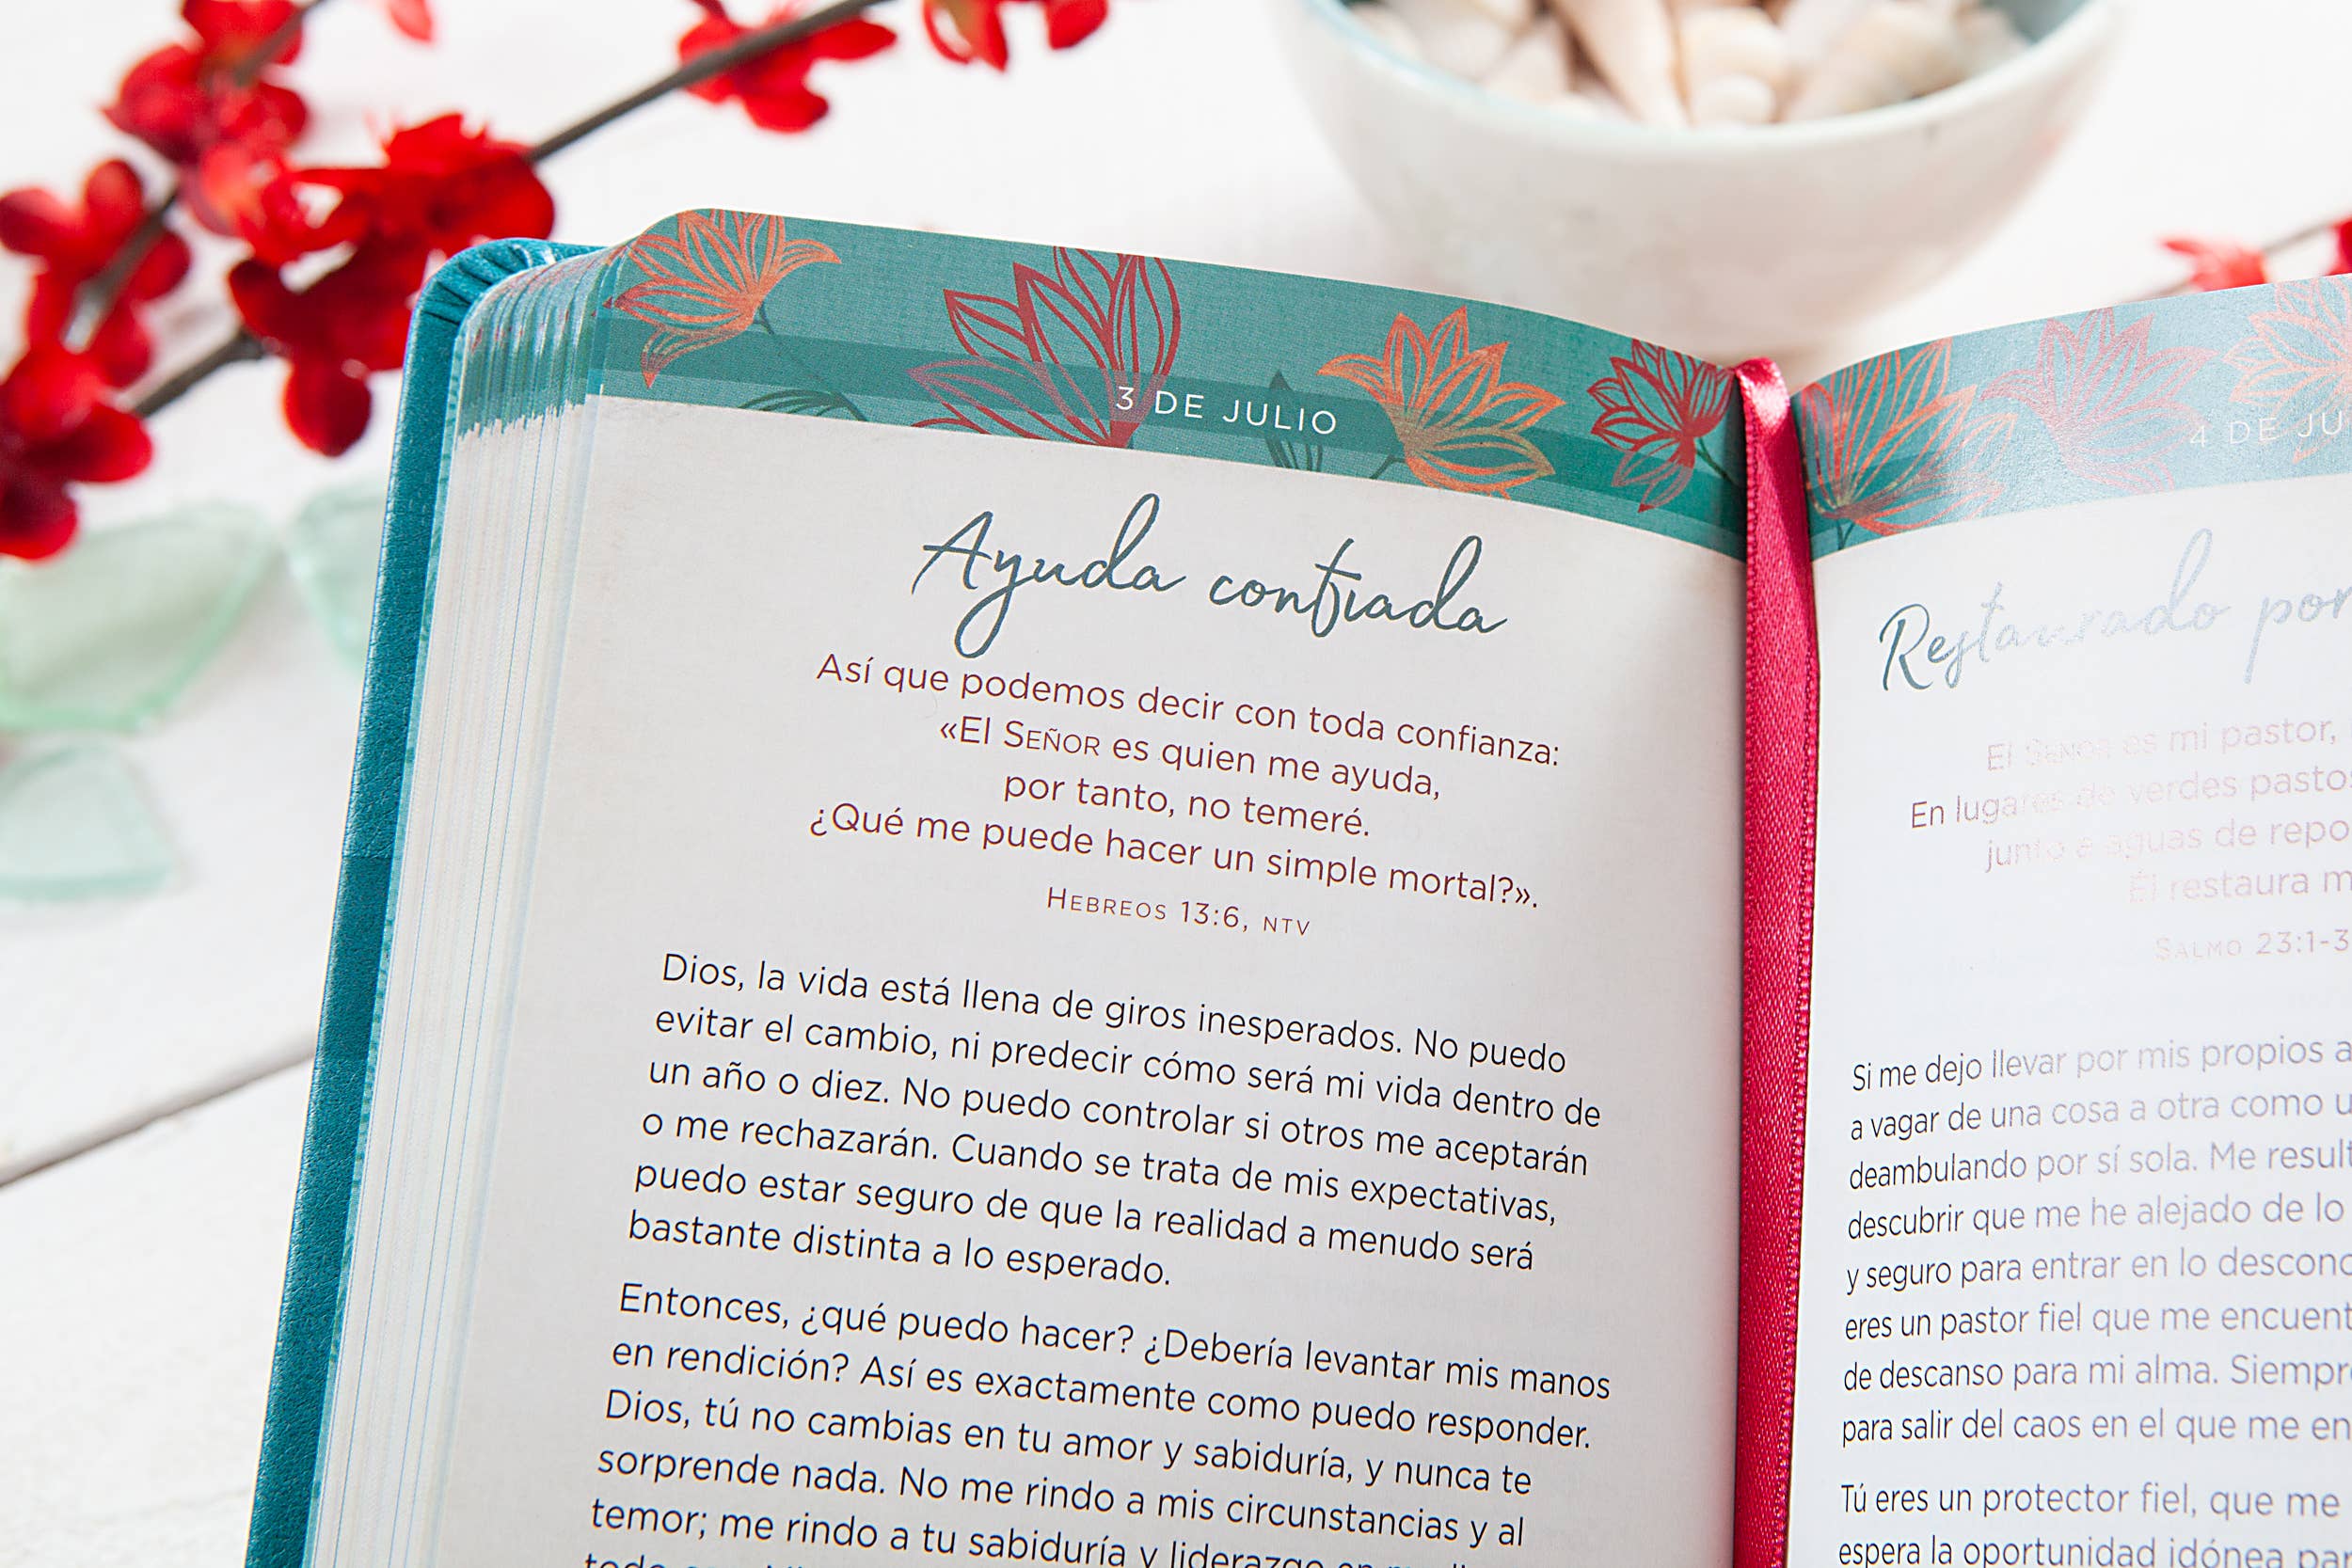 3 DE JULIO
Ayuda confiada
Así que podemos decir con toda confianza:
«El SEÑOR es quien me ayuda,
por tanto, no temeré.
¿Qué me puede hacer un simple mortal?».
HEBREOS 13:6, NTV
Dios, la vida está llena de giros inesperados. No puedo
evitar el cambio, ni predecir cómo será mi vida dentro de
un año o diez. No puedo controlar si otros me aceptarán
o me rechazarán. Cuando se trata de mis expectativas,
puedo estar seguro de que la realidad a menudo será
bastante distinta a lo esperado.
Entonces, ¿qué puedo hacer? ¿Debería levantar mis manos
en rendición? Así es exactamente como puedo responder.
Dios, tú no cambias en tu amor y sabiduría, y nunca te
sorprende nada. No me rindo a mis circunstancias y al
temor; me rindo a tu sabiduría y liderazgo en
4 DE JU
Restaurado por
El SEÑOR es mi pastor,
En lugares de verdes pastos
junto a aguas de repo
Él restaura m
SALMO 23:1-3
Si me dejo llevar por mis propios a
a vagar de una cosa a otra como u
deambulando por sí sola. Me result
descubrir que me he alejado de lo
y seguro para entrar en lo descono
eres un pastor fiel que me encuent
de descanso para mi alma. Siempre
para salir del caos en el que me en
Tú eres un protector fiel, que me
espera la oportunidad idónea pa